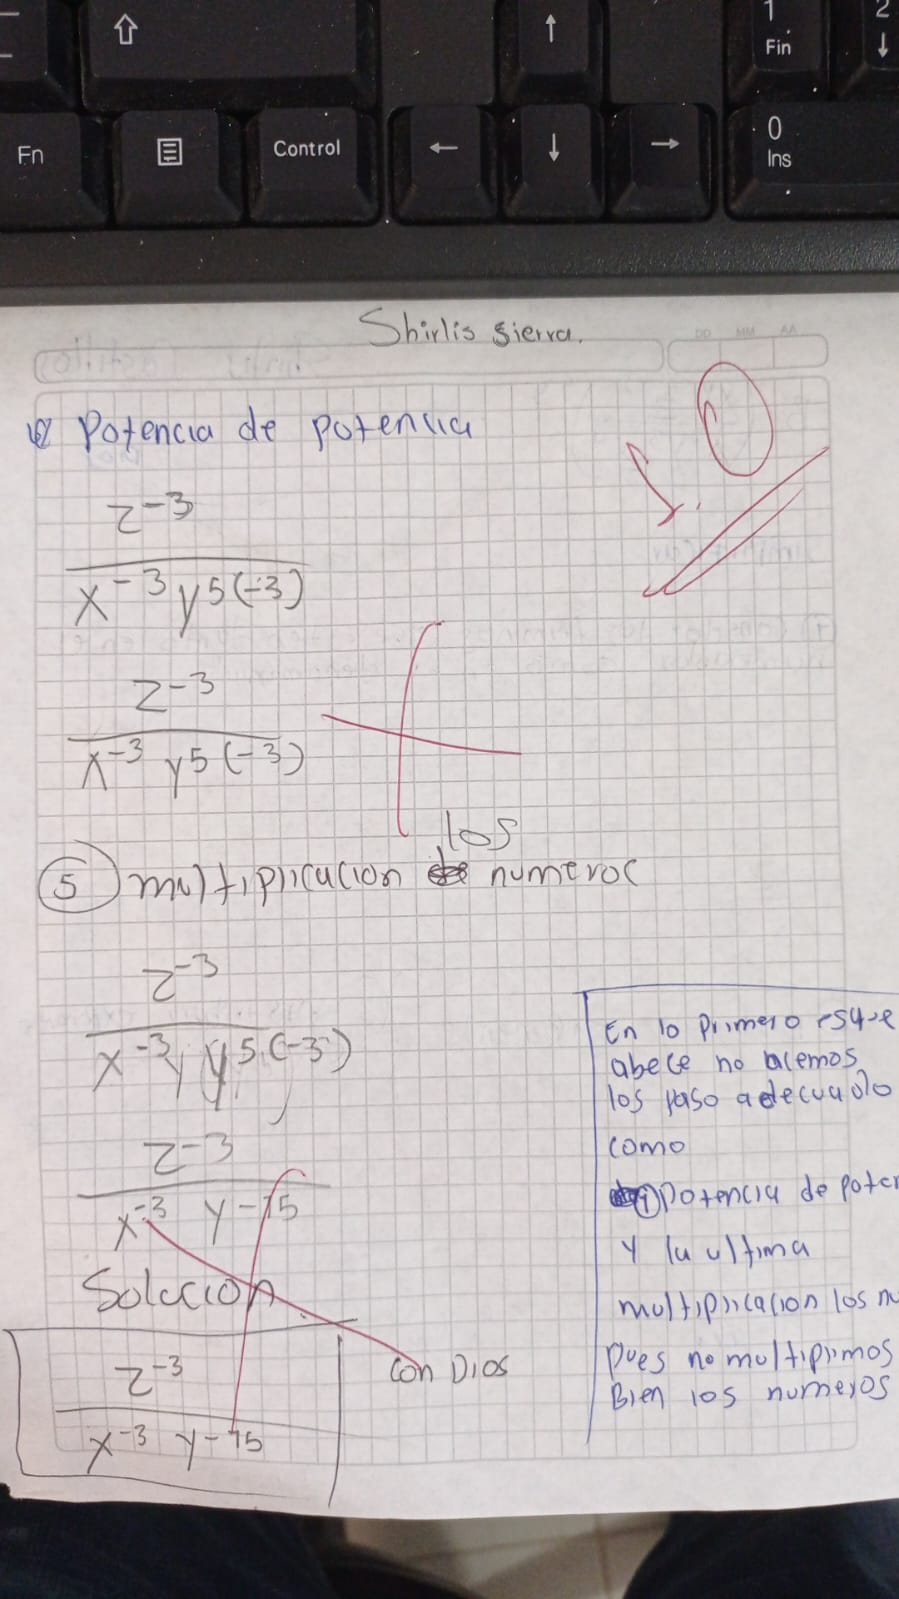 1 2
Fin
Fn Control 0
Ins
Shirlis Sierra.
DD MM AA
Potencia de potencia
z^-3
x^-3 y^5(-3)
z^-3
x^-3 y^5(-3)
los
5 multiplicacion numeros
z^-3
x^-3 y y^5.(-3)
z^-3
x^-3 y^-15
Solucion
z^-3
x^-3 y^-15
con Dios
En lo primero esque
abece no acemos
los paso adecuado
como
① potencia de poten
y la ultima
multiplicacion los nu
pues no multiplimos
Bien los numeros